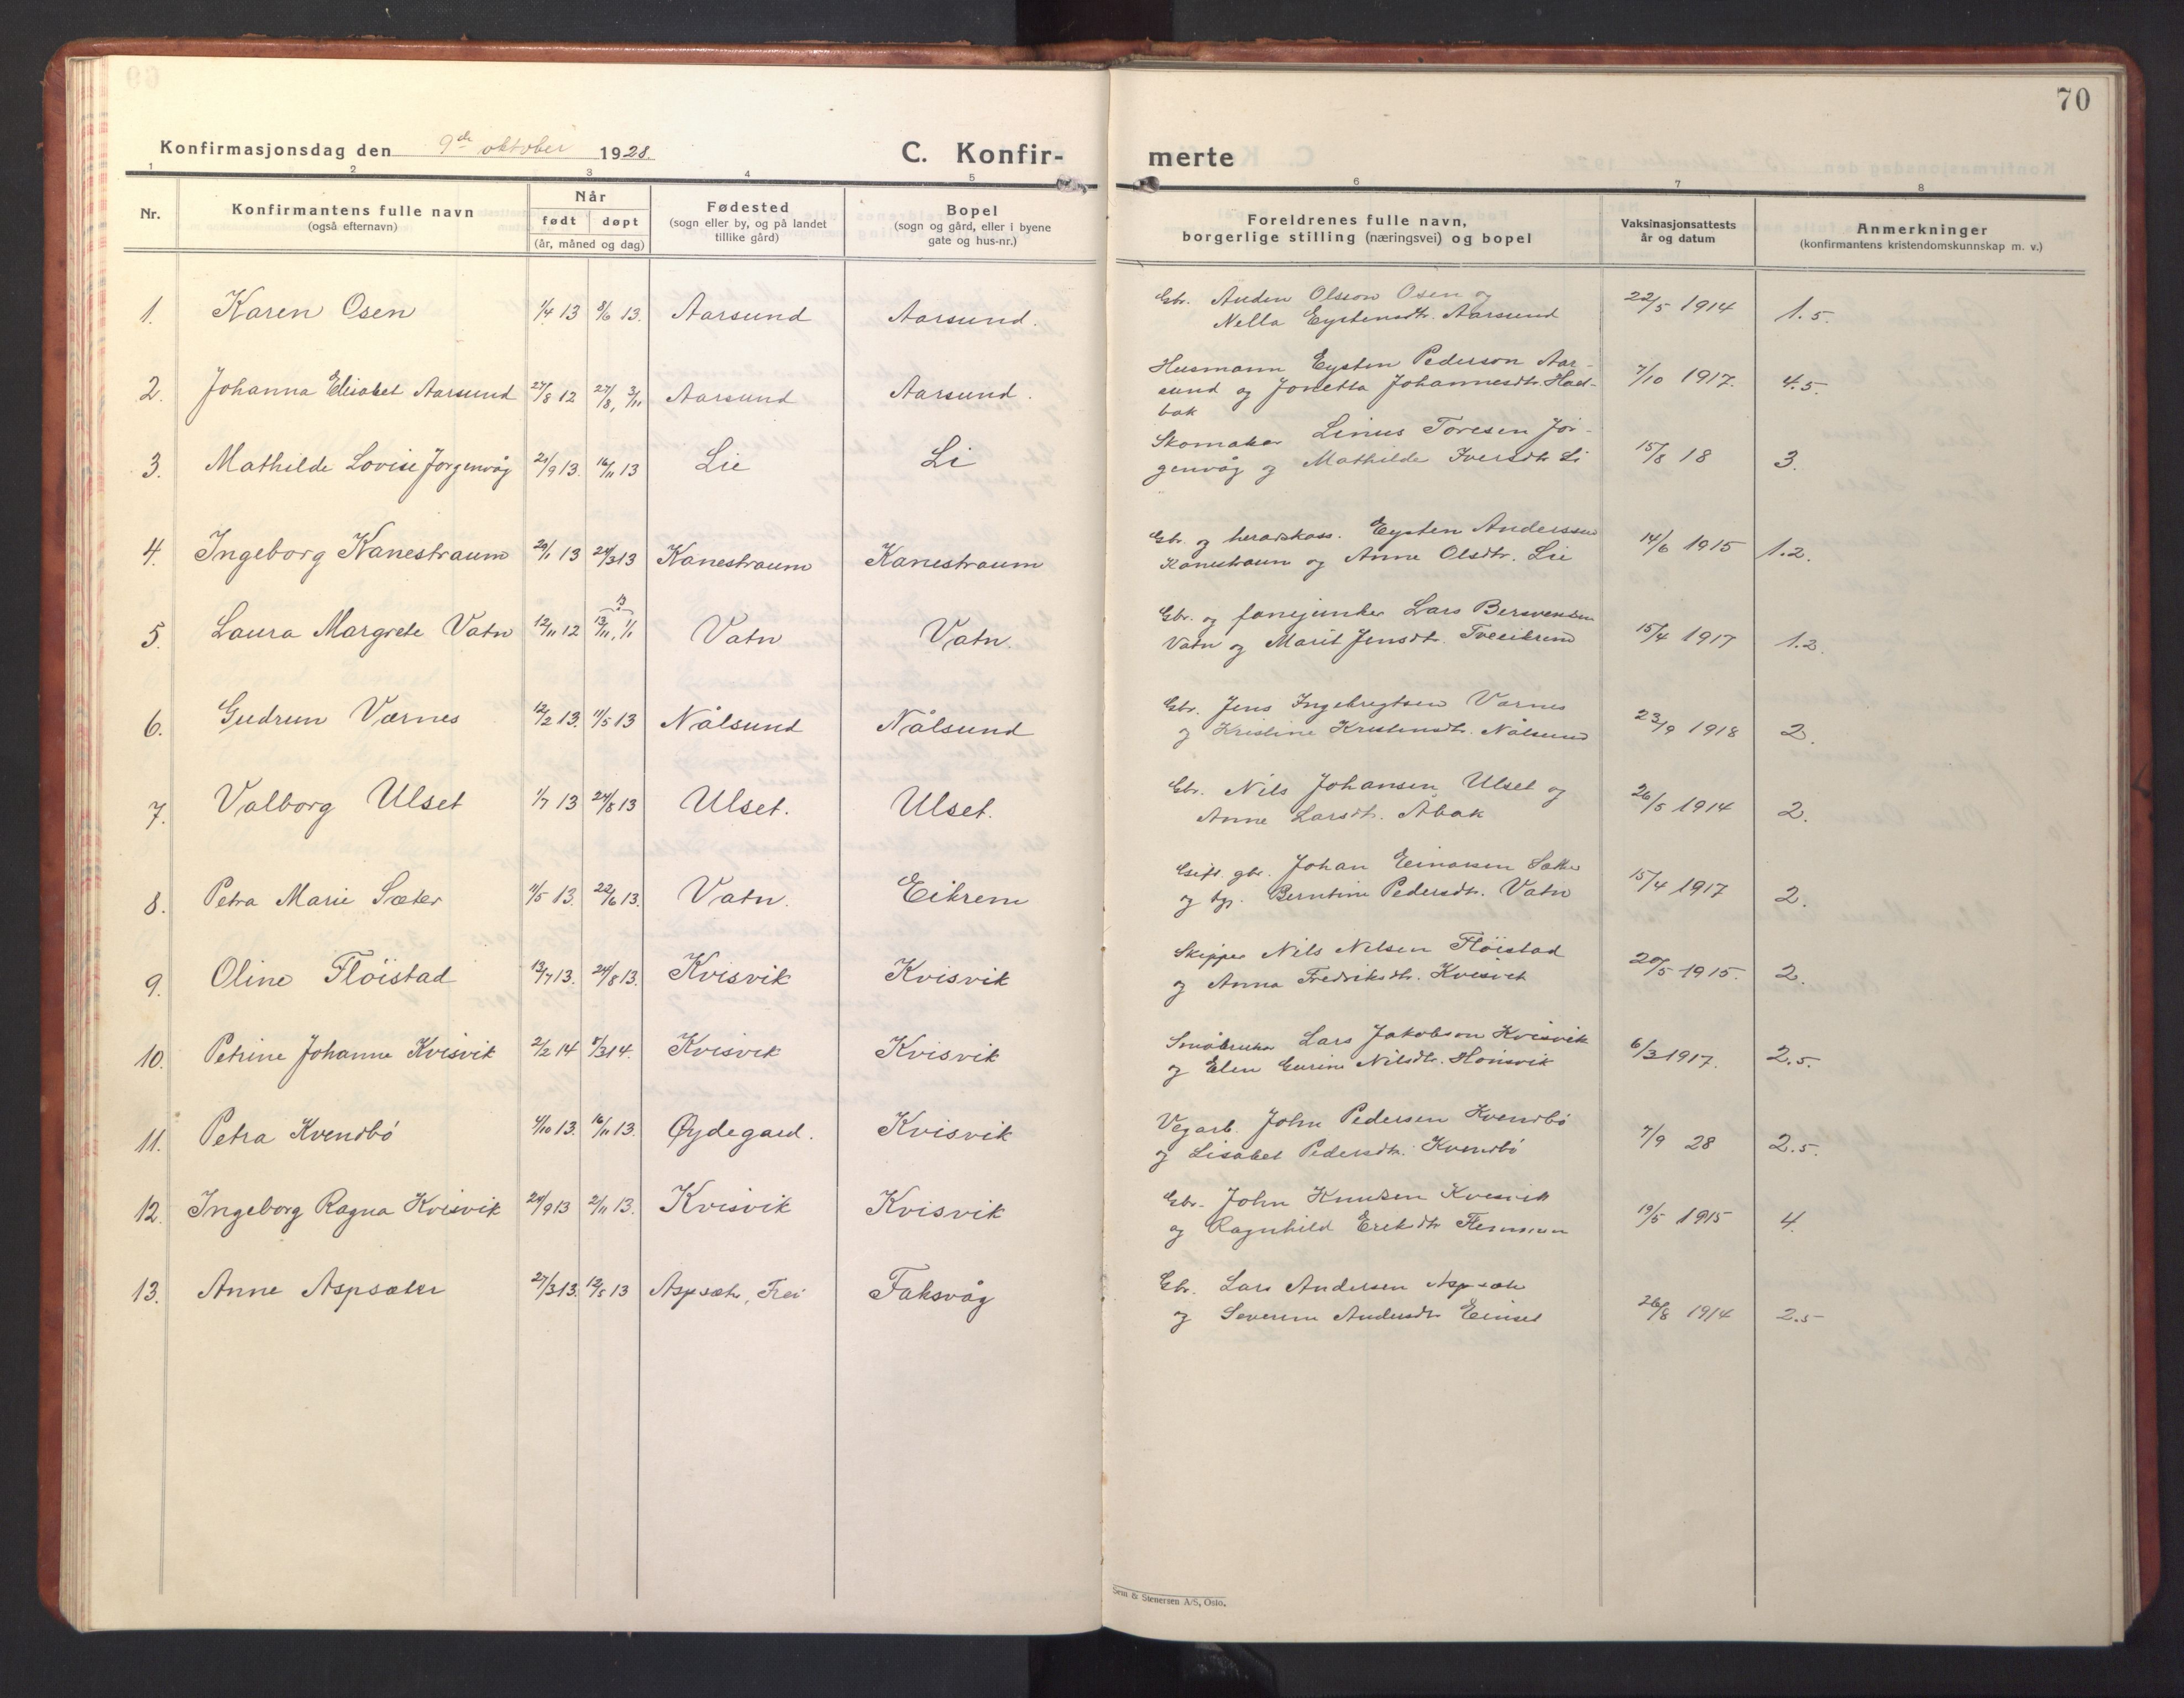 70
Konfirmasjonsdag den 9de oktober 1928.
C. Konfir-
merte
1 2 3 4 5 6 7 8
Nr.
Konfirmantens fulle navn
(også efternavn)
Når
født døpt
(år, måned og dag)
Fødested
(sogn eller by, og på landet
tillike gård)
Bopel
(sogn og gård, eller i byene
gate og hus-nr.)
Foreldrenes fulle navn,
borgerlige stilling (næringsvei) og bopel
Vaksinasjonsattests
år og datum
Anmerkninger
(konfirmantens kristendomskunnskap m. v.)
1. Karen Osen 1/4 13 8/6 13. Aarsund Aarsund. Gbr. Anden Olsson Osen og 22/5 1914 1.5.
Nella Eystensdtr. Aarsund
2. Johanna Elisabet Aarsund 27/8 12 27/8, 3/11 Aarsund Aarsund. Husmann Eysten Pederson Aar- 7/10 1917. 4.5.
sund og Jonetta Johannesdtr.
bak
3. Mathilde Lovise Jorgenvåg /9 13. 16/11 13 Lie Li Skomaker Linus Toresen Jör- 15/8 18 3.
genvåg og Mathilde Iversdtr Li
4. Ingeborg Kanestraum 20/1 13 24/3 13 Kanestraum Kanestraum Gbr. og heradskass. Eysten Anderssen 14/6 1915 1.2.
Kanestraum og Anne Olsdtr. Lie
13
5. Laura Margrete Vatn 12/11 12 13/11, 1/1 Vatn Vatn. Gbr. og fanejunker Lars Bersvendsen 15/4 1917 1.2.
Vatn og Marit Jensdtr. Tveeikrem
6. Gudrun Værnes 12/2 13. 11/5 13 Nålsund Nålsund Gbr. Jens Ingebregtsen Varnes 23/9 1918 2.
og Kristine Kristensdtr. Nålsund
7. Valborg Ulset 1/7 13 24/8 13 Ulset. Ulset. Gbr. Nils Johansen Ulset og 26/5 1914 2.
Anne Larsdtr. Abak
8. Petra Marie Sæter 11/5 13. 22/6 13. Vatn. Eikrem Gift. gbr. Johan Einarsen Sæther 15/4 1917 2.
og tjp. Berntine Pedersdtr. Vatn
9. Oline Flöistad 12/7 13. 24/8 13. Kvisvik Kvisvik Skipper Nils Nilsen Flöistad 20/5 1915. 2.
og Anna Fredriksdtr. Kvisvik
10. Petrine Johanne Kvisvik 2/2 14 8/3 14. Kvisvik Kvisvik Småbruker Lars Jakobson Kvisvik 6/3 1917. 2.5.
og Elen Gurine Nilsdtr. Honsvik
11. Petra Kvendbö 4/10 13. 16/11 13. Øydegard. Kvisvik Vegarb. John Pedersen Kvendbö 7/9 28 2.5.
og Lisabet Pedersdtr. Kvendbö
12. Ingeborg Ragna Kvisvik 24/9 13 2/11 13. Kvisvik Kvisvik Gbr. John Knudsen Kvisvik 19/5 1915 4.
og Ragnhild Eriksdtr
13. Anne Aspsæter 27/3 13. 12/5 13 Aspsæter, Frei Faksvåg Gbr. Lars Andersen Aspsæter
og Severine Andersdtr Einset 26/8 1914 2.5
Sem & Stenersen A/S, Oslo.